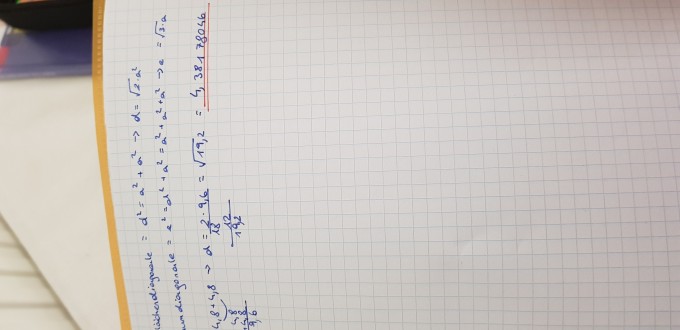 ächendiagonale = d² = a² + a² → d = √2·a²
umdiagonale = e² = d² + a² = a² + a² + a² → e = √3·a
4,8+4,8 → d = 2·9,6 = √19,2 = 4,38178046
4,8 18
4,8 12
9,6 19,2